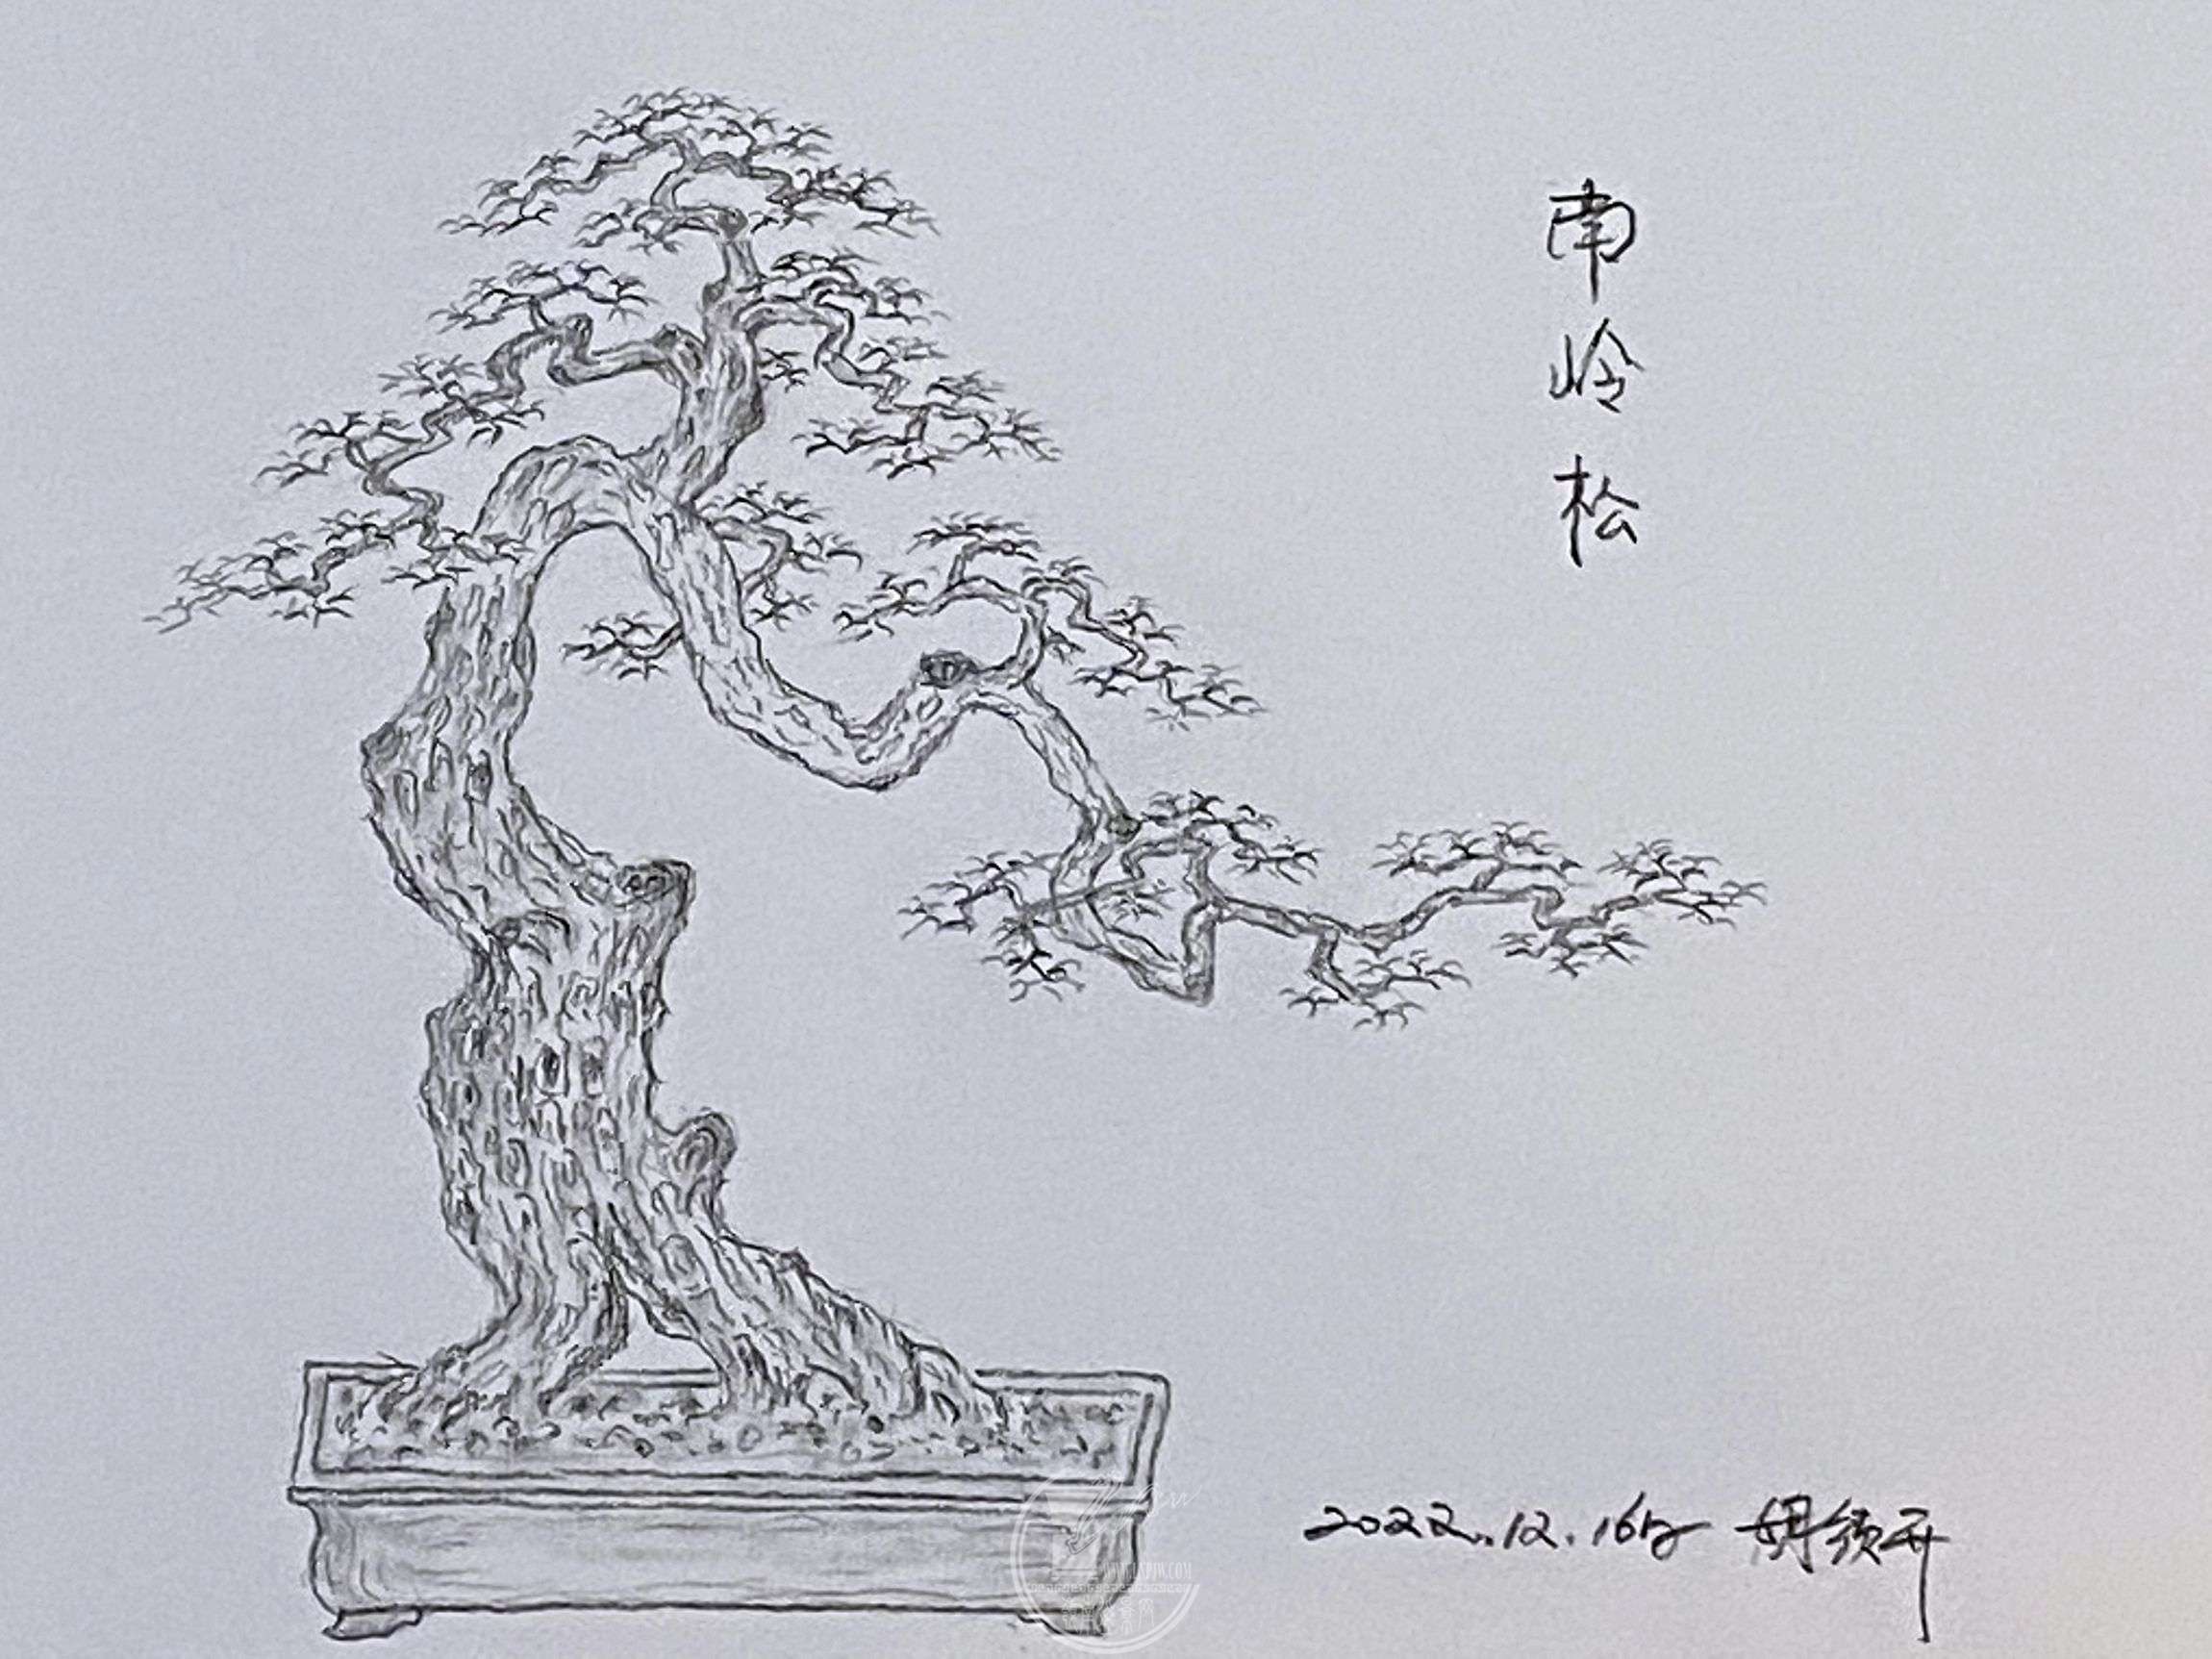 南岭松
2022.12.16日